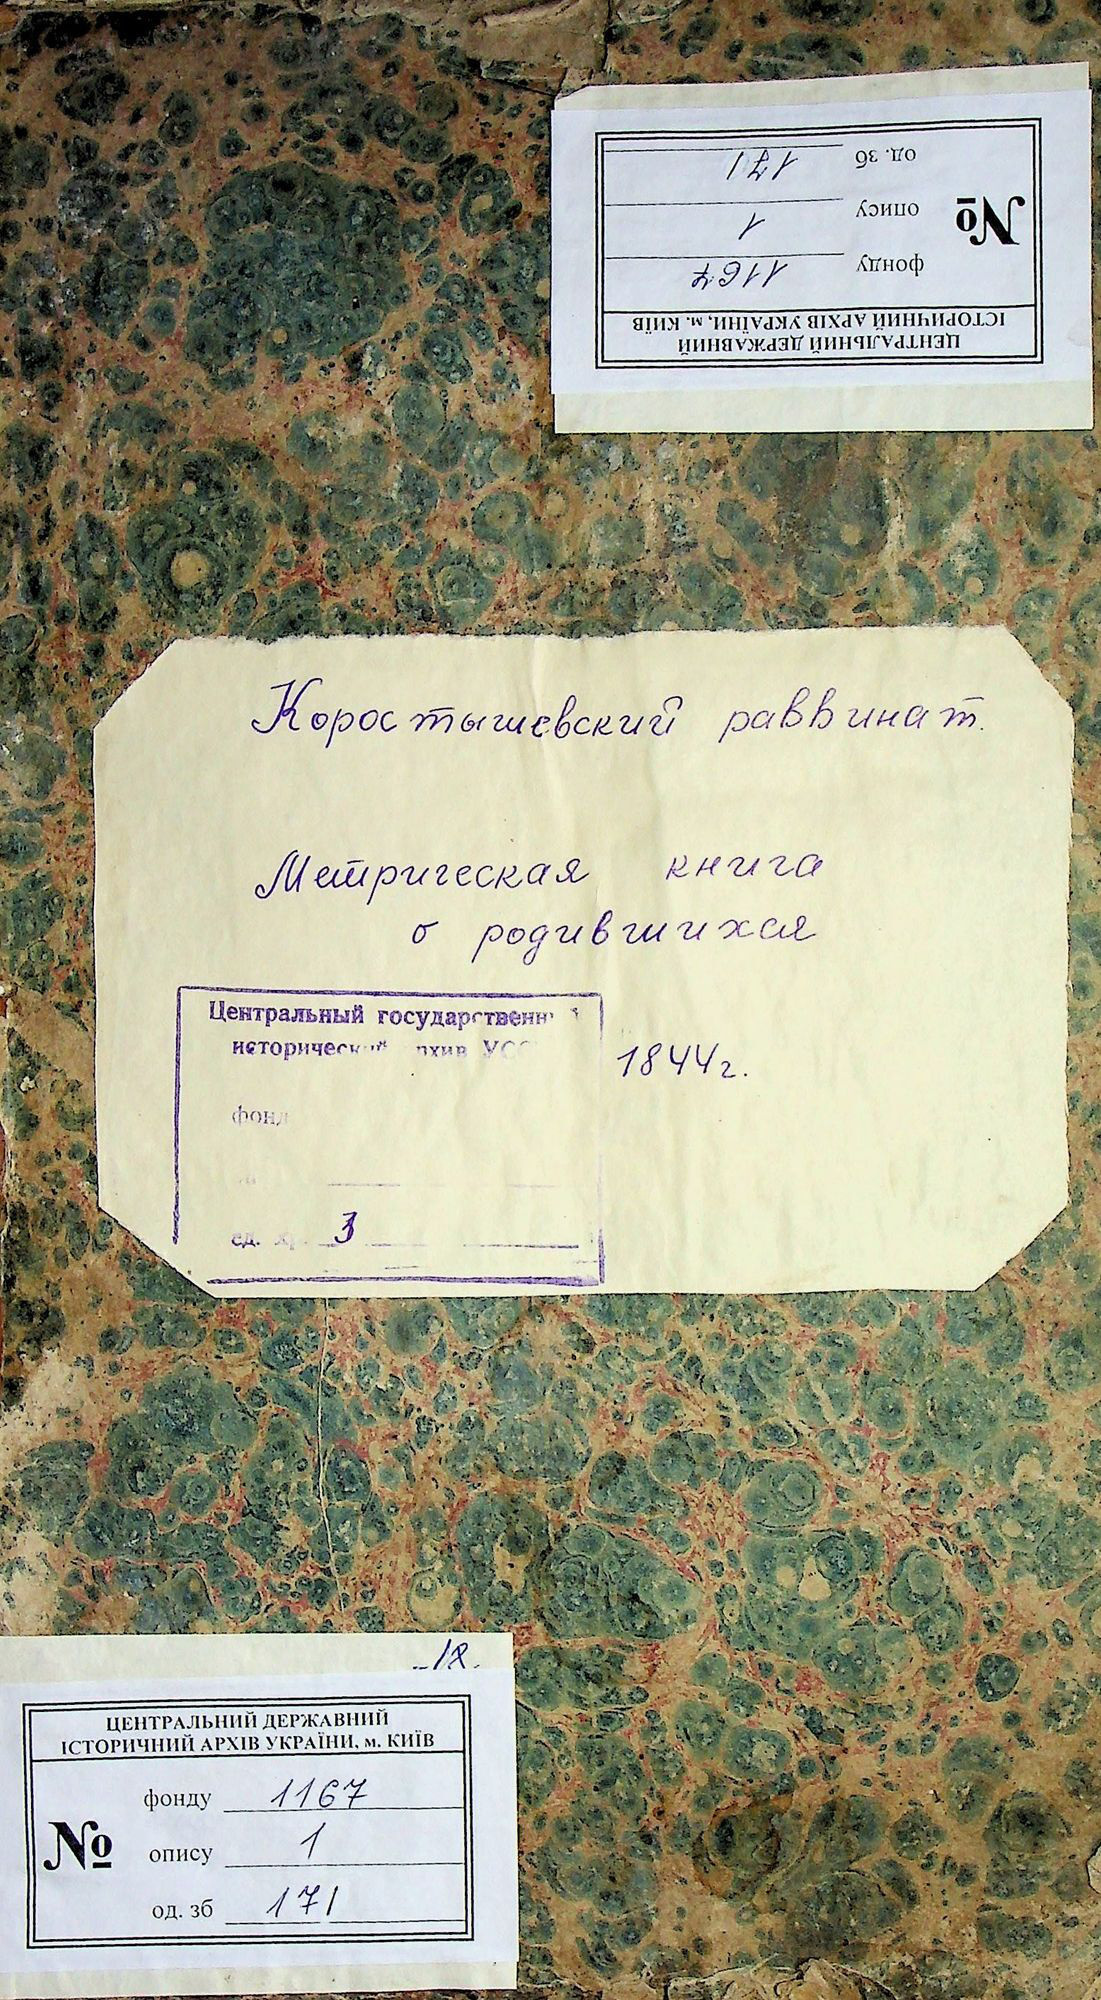 ЦЕНТРАЛЬНИЙ ДЕРЖАВНИЙ
ІСТОРИЧНИЙ АРХІВ УКРАЇНИ, м. КИЇВ
фонду 1167
№ опису 1
од. зб 171
Коростышевский раввинат.
Метрическая книга
о родившихся
1844 г.
Центральный государственн
исторический архив УСС
фонд
ед. хр. 3
-12.
ЦЕНТРАЛЬНИЙ ДЕРЖАВНИЙ
ІСТОРИЧНИЙ АРХІВ УКРАЇНИ, м. КИЇВ
фонду 1167
№ опису 1
од. зб 171